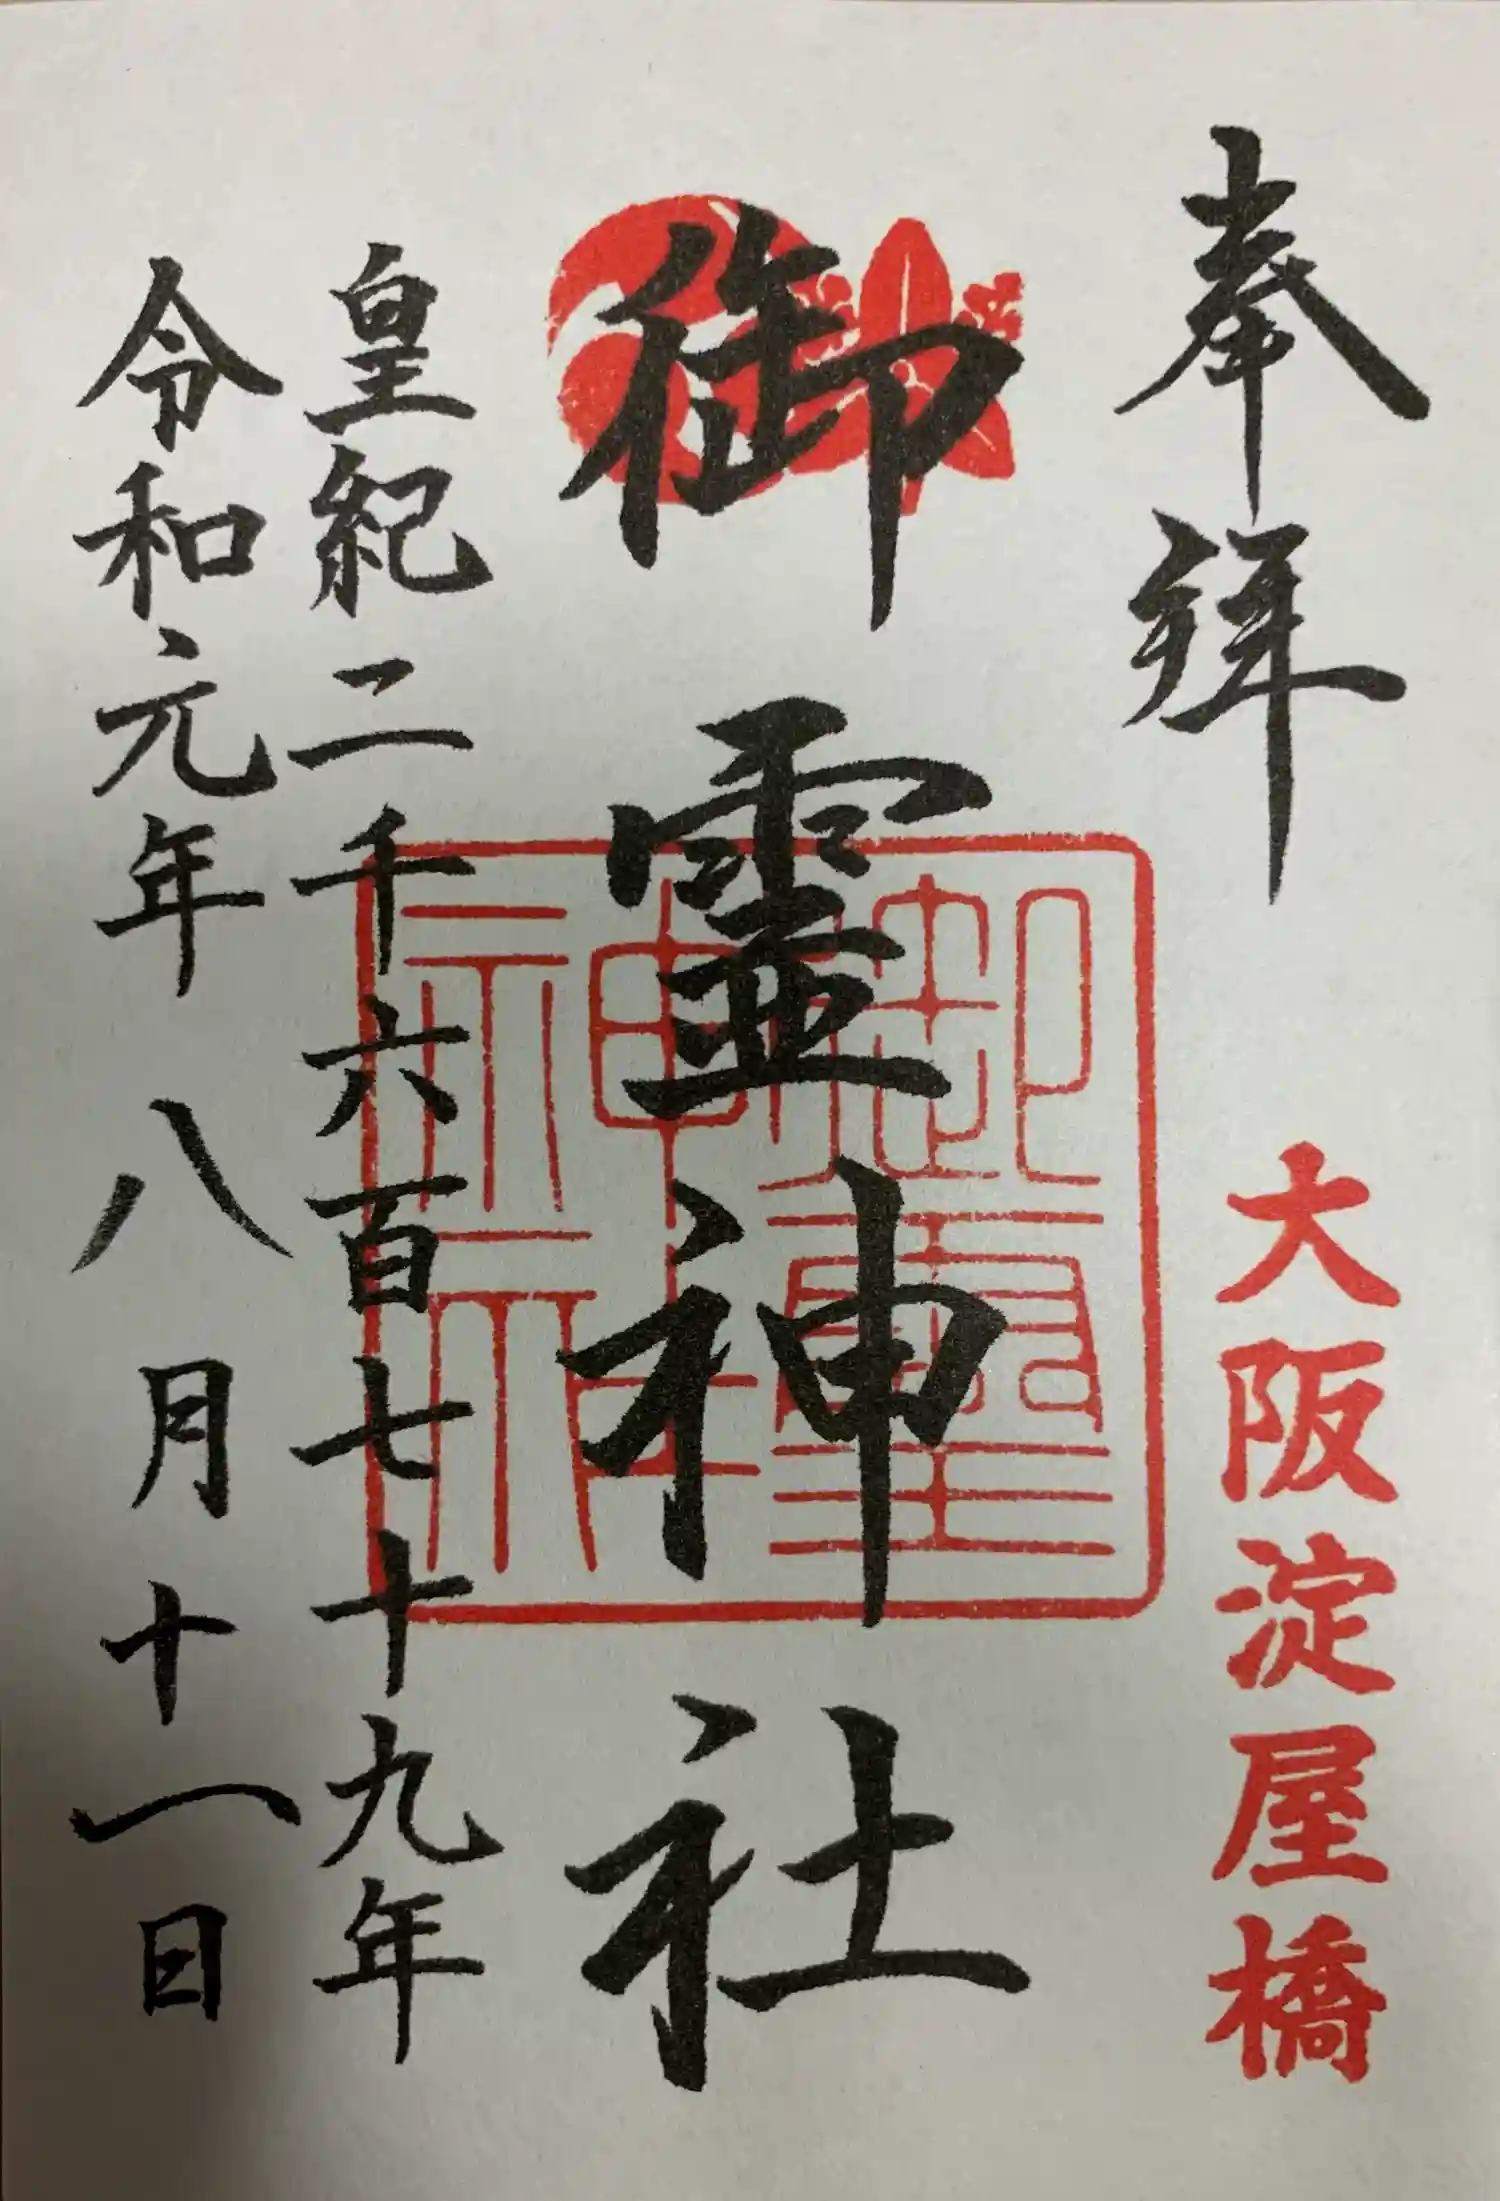 奉拝
大阪淀屋橋
御霊神社
御霊
神社
皇紀二千六百七十九年
令和元年八月十一日